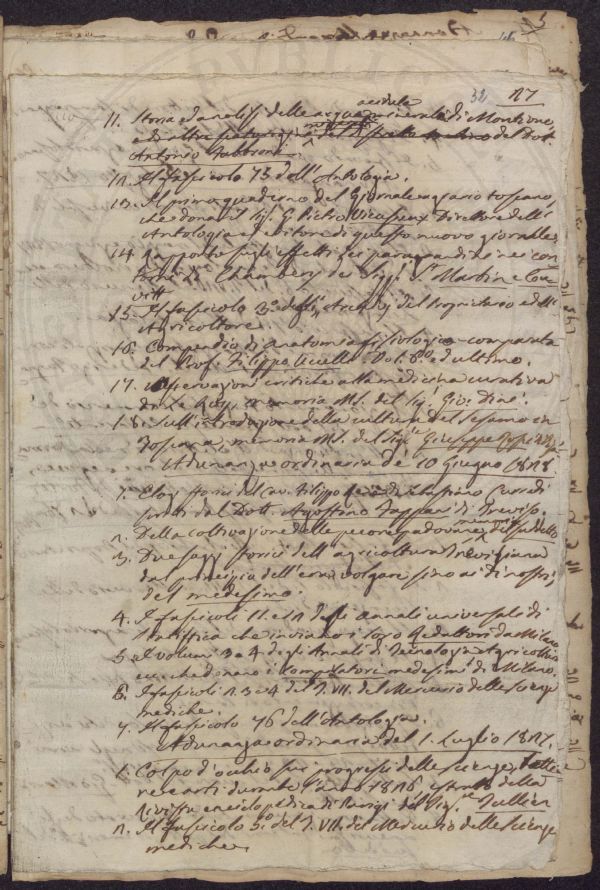 32 27
11. Storia ed analisi delle acque acidule minerali di Montione,
e di altre del Dott.
Antonio Fabbroni.
12. Il fascicolo 73 dell'Antologia.
13. Il primo quaderno del Giornale agrario toscano,
che dona il Sig. G. Pietro Vieusseux Direttore dell'
Antologia ed editore di questo nuovo giornale.
14. Rapporto sugli effetti dei paragrandini nei con
torni di Chambery de' Sigg. St Martin e Cou
vitt
15. Il fascicolo 3.o degli del Proprietario e dell'
Agricoltore.
16. Compendio di Anatomia fisiologico-comparata
del Prof. Filippo Uccelli. Vol. 8.o ed ultimo.
17. Osservazioni critiche alla medicina curativa
di Le Roy, memoria MS. del Sig. Gio: Dine.
18. Sull'introduzione della cultura del Sesamo in
Toscana, memoria MS. del Sig. Giuseppe
Adunanza ordinaria de' 10 Giugno
1. Elogj storici del Cav. Filippo Re e di Curedi
del Dott. Agostino Fappani di Treviso.
2. Della coltivazione delle pecore padovane, memoria del suddetto
3. Due saggi storici dell'agricoltura Trevigiana
dal principio dell'era volgare sino ai dì nostri
del medesimo.
4. I fascicoli 11. e 12 degli annali universali di
che inviano i loro Redattori da Milano
5. I volumi 3 e 4 degli Annali di Tecnologia Agricoltura
ec. che donano i compilatori medesimi di Milano.
6. I fascicoli 2. 3 e 4 del T. VII. del Mercurio delle scienze
mediche.
7. Il fascicolo 76 dell'Antologia.
Adunanza ordinaria del 1. Luglio 1827.
1. Colpo d'occhio sui progressi delle scienze, lettere
ed arti durante l'anno 1826 estratto della
Rivista enciclopedica di Parigi del Sig.r Jullien
2. Il fascicolo 5.o del T. VII. del Mercurio delle Scienze
mediche.